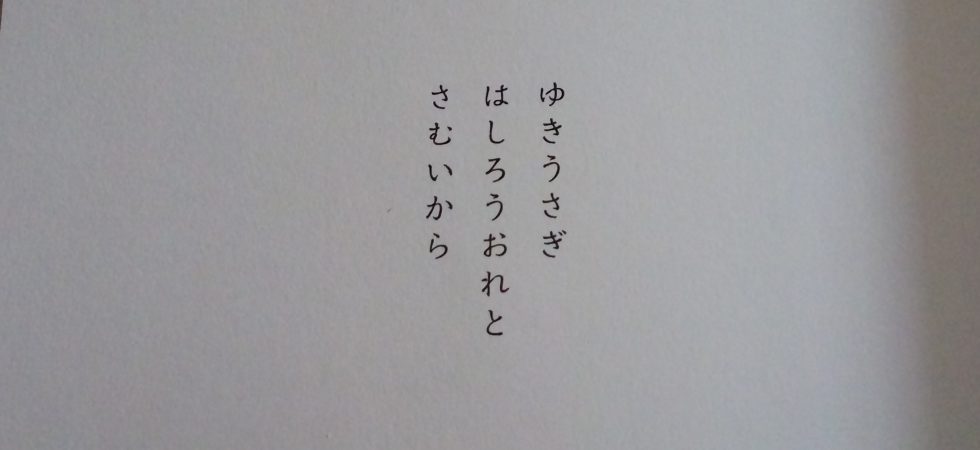 ゆきうさぎ
はしろうおれと
さむいから